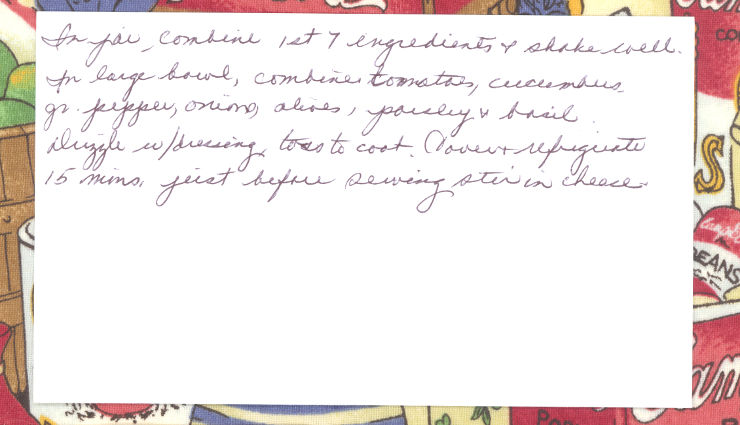 In jar, combine 1st 7 ingredients & shake well.
In large bowl, combine tomatoes, cucumbers,
gr. pepper, onions, olives, parsley & basil.
Drizzle w/dressing, toss to coat. Cover & refrigerate
15 mins. just before serving stir in cheese.
CO
S
Campbell's
BEANS